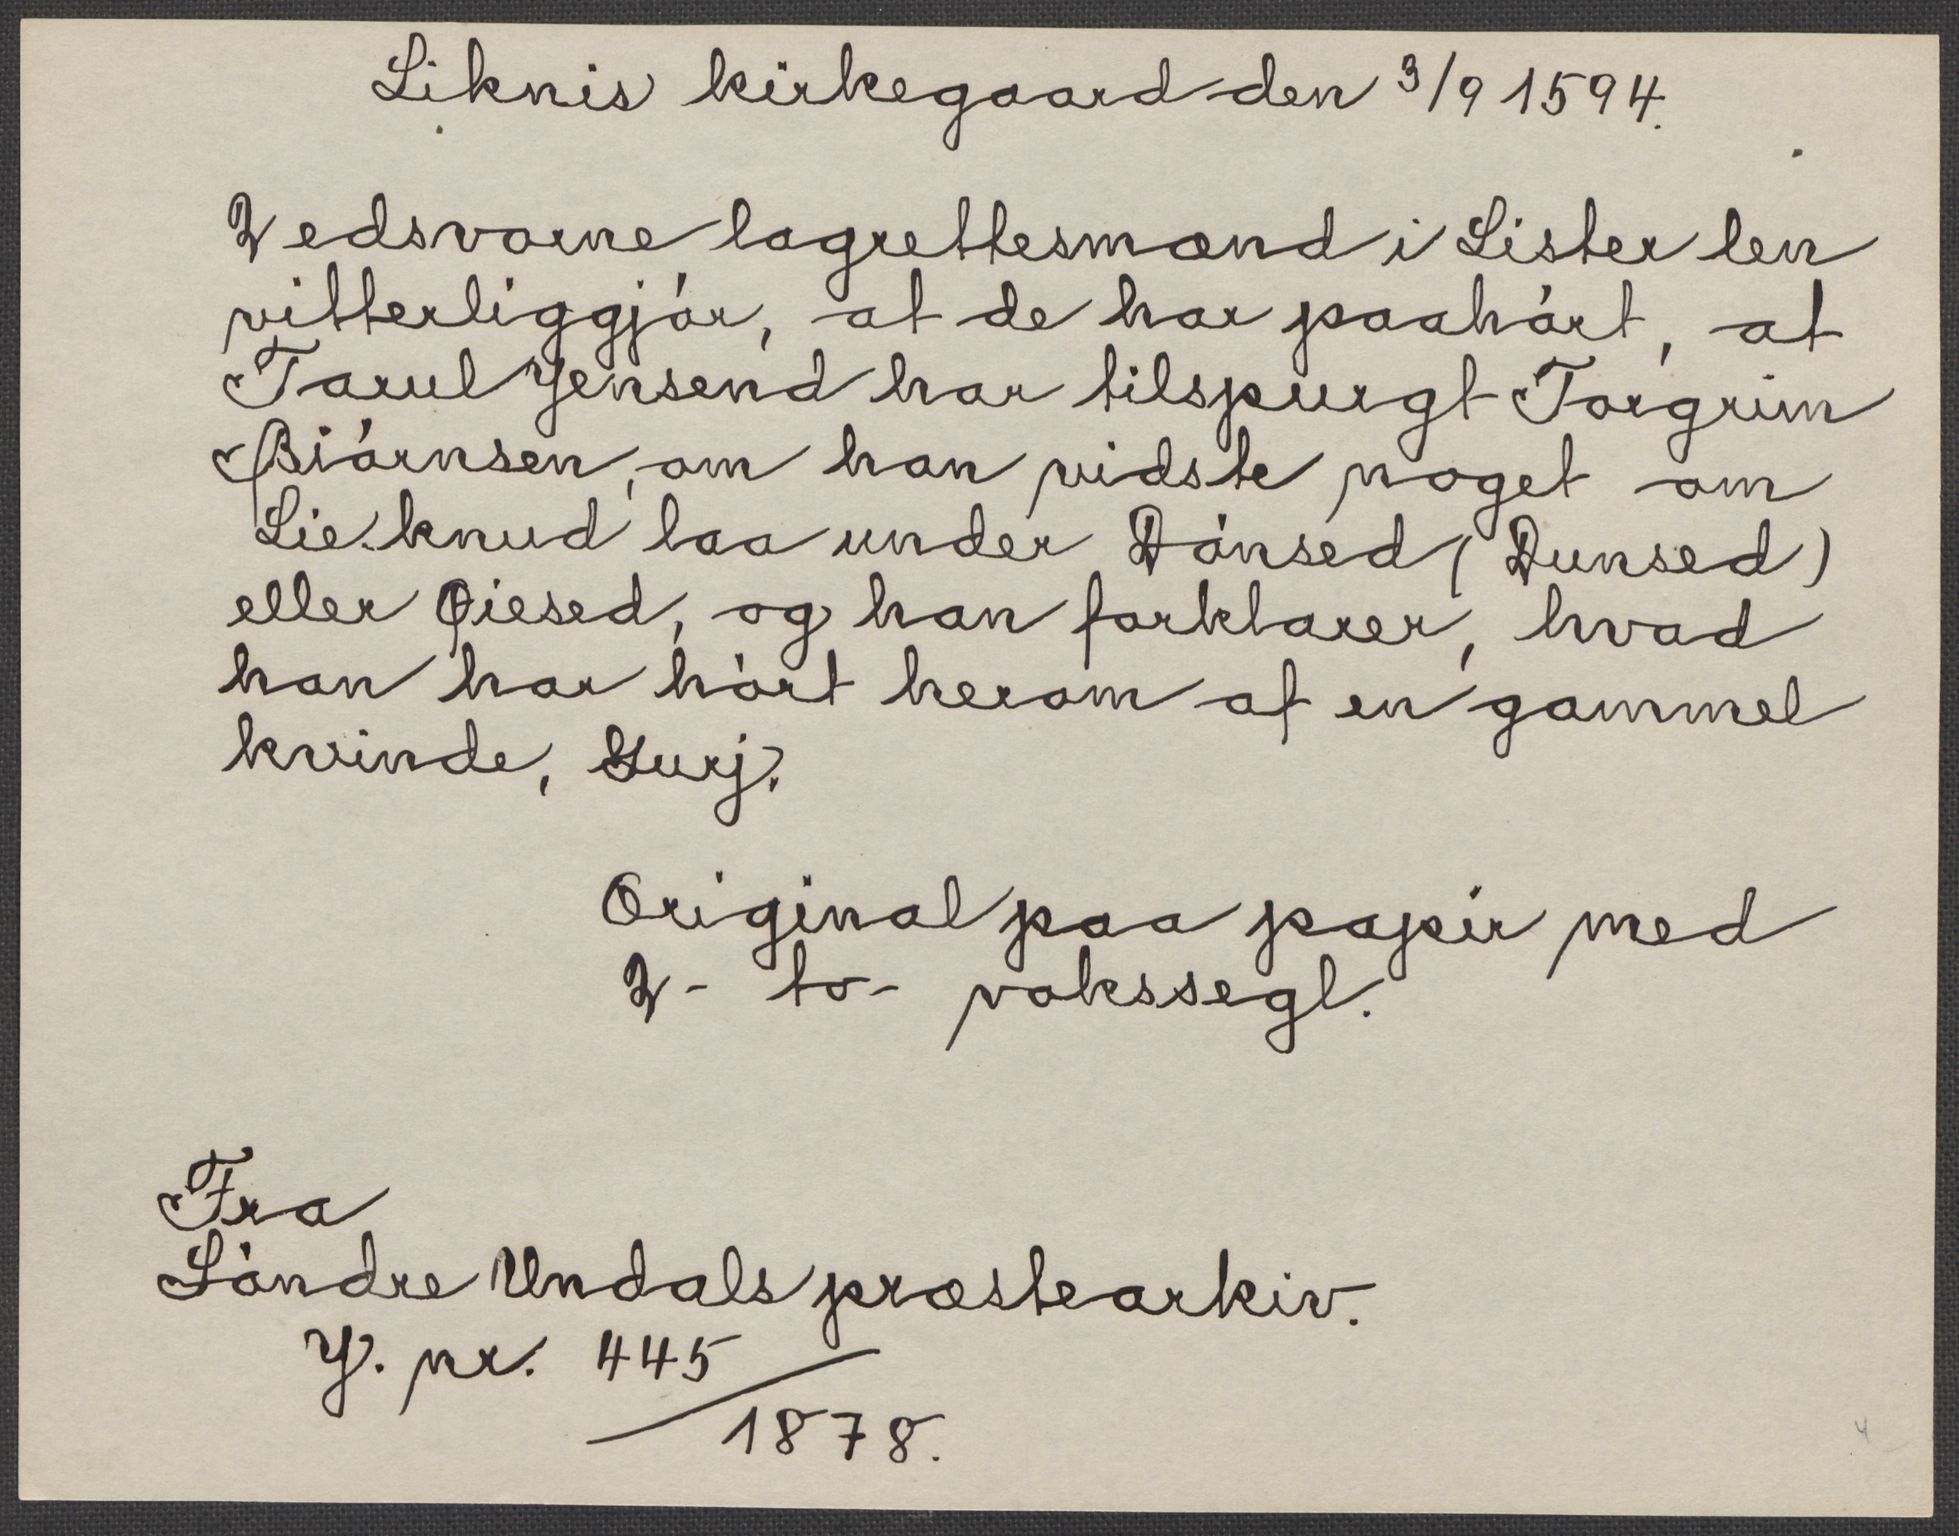 Liknis kirkegaard den 3/9 1594.
2 edsvorne lagrettesmænd i Lister len
vitterliggjór, at de har paahórt, at
Tarul Jensend har tilspurgt Torgrim
Biórnsen, om han vidste noget om
Lie.knud laa under Dónsed (Dunsed)
eller Øiesed, og han forklarer, hvad
han har hórt herom af en gammel
kvinde, Gurj.
Original paa papir med
2 - to - vokssegl.
Fra
Sóndre Undals præstearkiv.
J. nr. 445/1878.
4